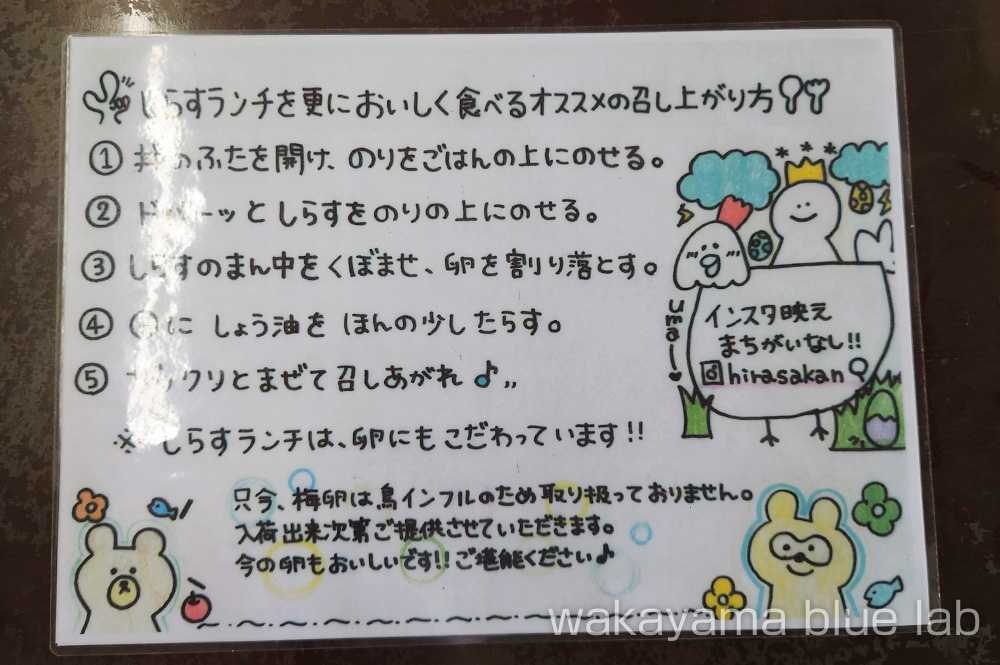 しらすランチを更においしく食べるオススメの召し上がり方
① 丼のふたを開け、のりをごはんの上にのせる。
② ドバーッとしらすをのりの上にのせる。
③ しらすのまん中をくぼませ、卵を割り落とす。
④ に しょう油を ほんの少したらす。
⑤ クリとまぜて召しあがれ♪
※ しらすランチは、卵にもこだわっています!!
uma—♥
インスタ映え
まちがいなし!!
hirasakan
只今、梅卵は鳥インフルのため取り扱っておりません。
入荷出来次第ご提供させていただきます。
今の卵もおいしいです!!ご堪能ください♪
wakayama blue lab